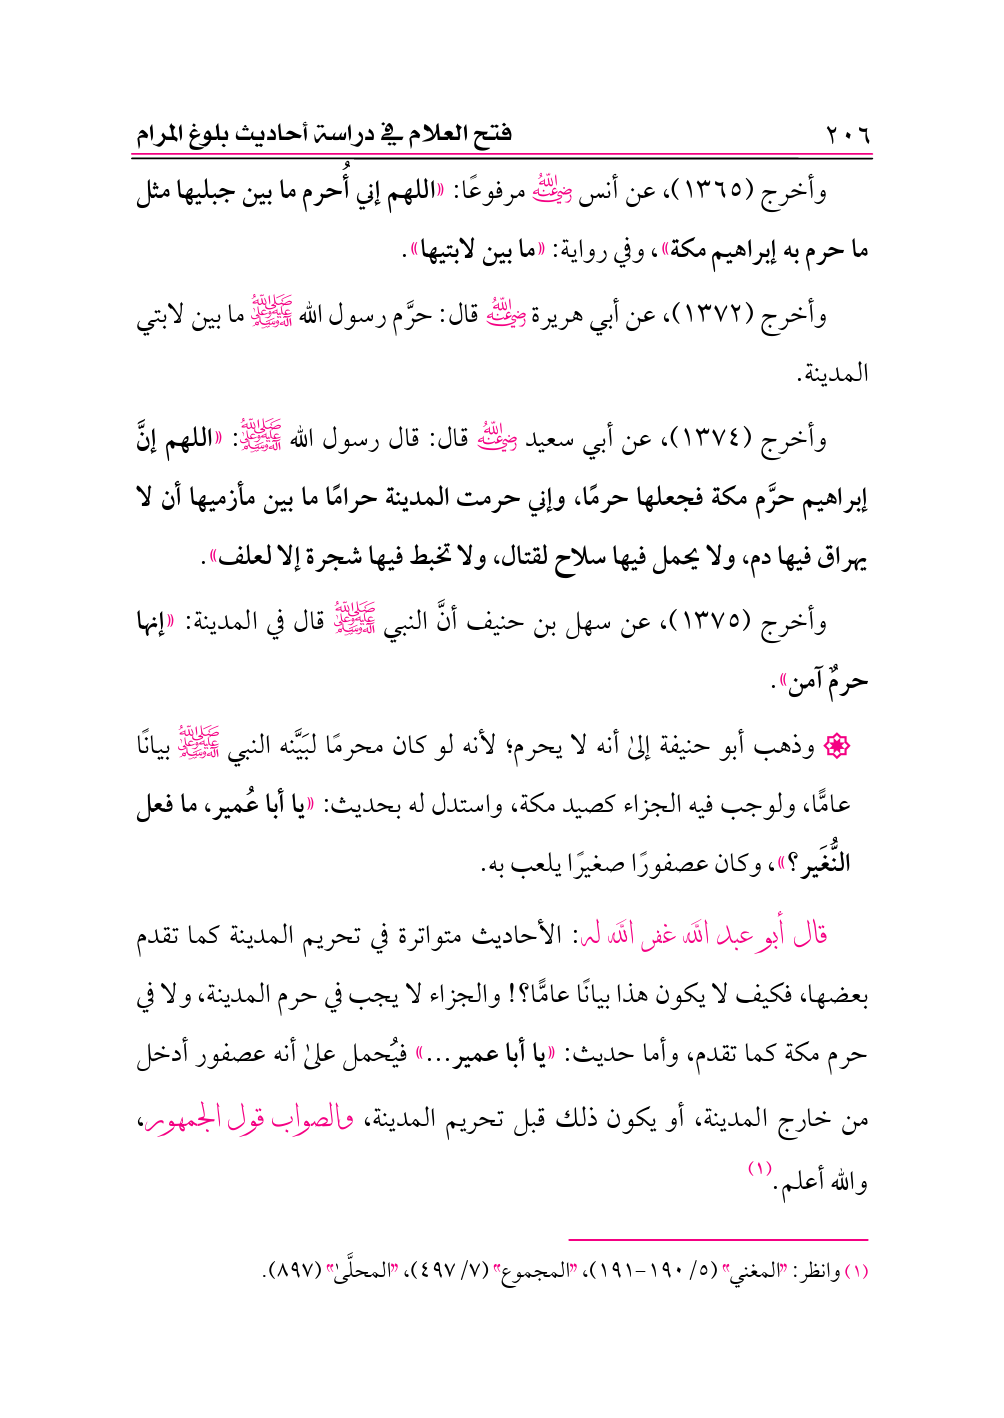 ٢٠٦ فتح العلام في دراسة أحاديث بلوغ المرام
وأخرج (١٣٦٥)، عن أنس رضي الله عنه مرفوعًا: «اللهم إني أُحرم ما بين جبليها مثل
ما حرم به إبراهيم مكة»، وفي رواية: «ما بين لابتيها».
وأخرج (١٣٧٢)، عن أبي هريرة رضي الله عنه قال: حرَّم رسول الله ﷺ ما بين لابتي
المدينة.
وأخرج (١٣٧٤)، عن أبي سعيد رضي الله عنه قال: قال رسول الله ﷺ: «اللهم إنَّ
إبراهيم حرَّم مكة فجعلها حرمًا، وإني حرمت المدينة حرامًا ما بين مأزميها أن لا
يهراق فيها دم، ولا يحمل فيها سلاح لقتال، ولا تخبط فيها شجرة إلا لعلف».
وأخرج (١٣٧٥)، عن سهل بن حنيف أنَّ النبي ﷺ قال في المدينة: «إنها
حرمٌ آمن».
وذهب أبو حنيفة إلىٰ أنه لا يحرم؛ لأنه لو كان محرمًا لبَيَّنه النبي ﷺ بيانًا
عامًّا، ولوجب فيه الجزاء كصيد مكة، واستدل له بحديث: «يا أبا عُمير، ما فعل
النُّغَير؟»، وكان عصفورًا صغيرًا يلعب به.
قال أبو عبد الله غفر الله له: الأحاديث متواترة في تحريم المدينة كما تقدم
بعضها، فكيف لا يكون هذا بيانًا عامًّا؟! والجزاء لا يجب في حرم المدينة، ولا في
حرم مكة كما تقدم، وأما حديث: «يا أبا عمير...» فيُحمل علىٰ أنه عصفور أدخل
من خارج المدينة، أو يكون ذلك قبل تحريم المدينة، والصواب قول الجمهور،
والله أعلم.(١)
(١) وانظر: "المغني" (٥/ ١٩٠-١٩١)، "المجموع" (٧/ ٤٩٧)، "المحلَّىٰ" (٨٩٧).